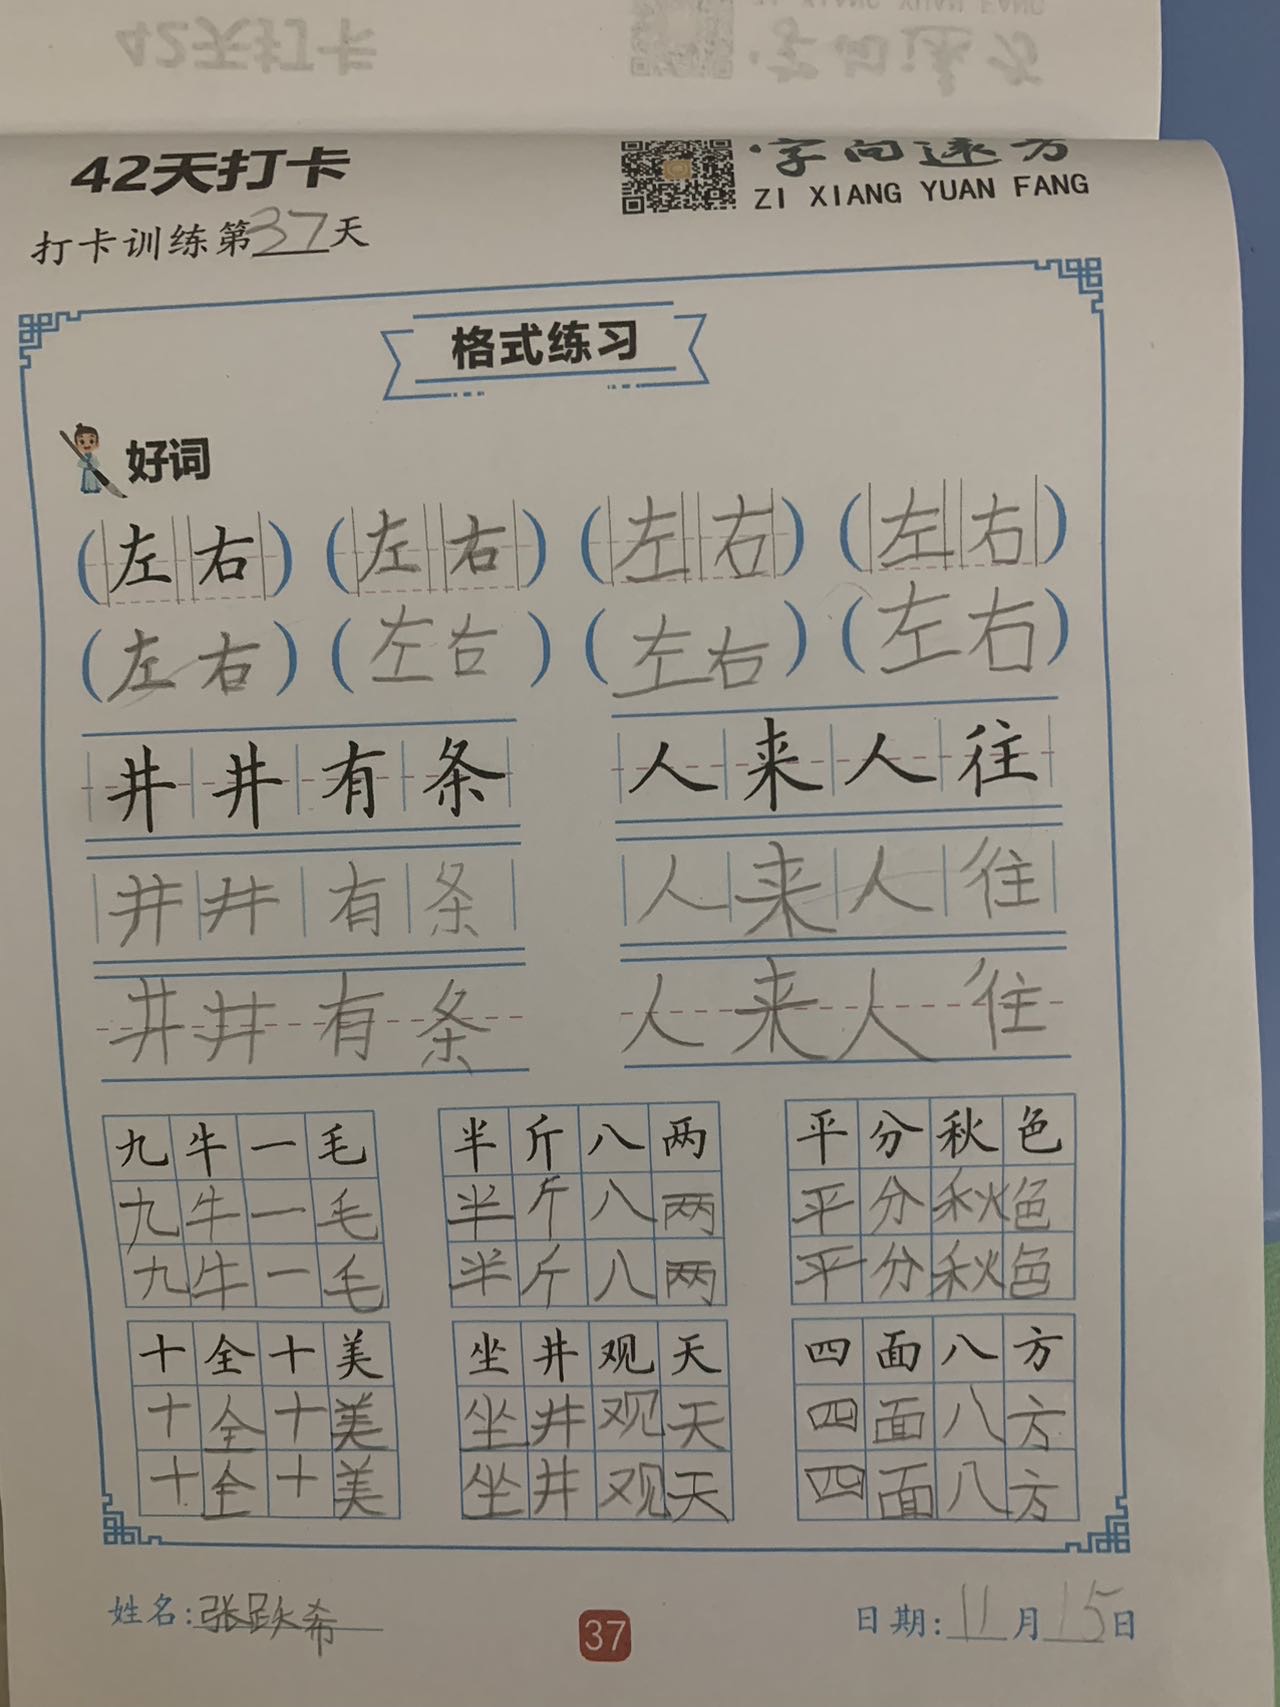 42天打卡
·字向远方
ZI XIANG YUAN FANG
打卡训练第37天
格式练习
好词
(左右) (左右) (左右) (左右)
(左右) (左右) (左右) (左右)
井井有条 人来人往
井井有条 人来人往
井井有条 人来人往
九牛一毛 半斤八两 平分秋色
九牛一毛 半斤八两 平分秋色
九牛一毛 半斤八两 平分秋色
十全十美 坐井观天 四面八方
十全十美 坐井观天 四面八方
十全十美 坐井观天 四面八方
姓名:张跃希 37 日期:11月15日